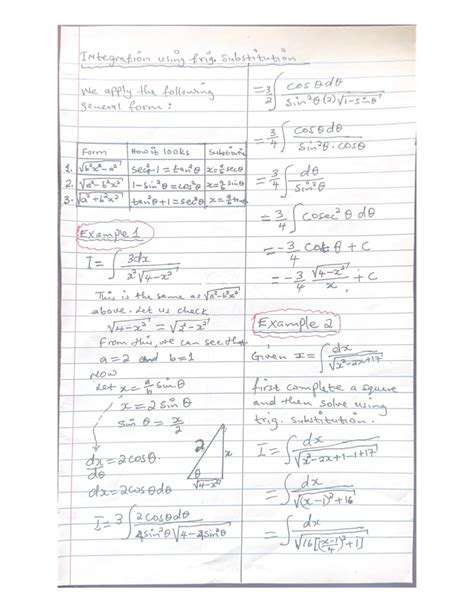 Integration using trig. Substitution
We apply the following
general form:
Form | How it looks | Substitution
1. √(b²x²-a²) | sec²θ-1 = tan²θ | x = a/b secθ
2. √(a²-b²x²) | 1-sin²θ = cos²θ | x = a/b sinθ
3. √(a²+b²x²) | tan²θ+1 = sec²θ | x = a/b tanθ
Example 1
I = ∫ 3dx / (x²√(4-x²))
This is the same as √(a²-b²x²)
above. Let us check
√(4-x²) = √(2²-x²)
From this, we can see that
a=2 and b=1
Now
Let x = a/b sinθ
x = 2 sinθ
sinθ = x/2
dx/dθ = 2cosθ
dx = 2cosθdθ
2
x
θ
√(4-x²)
I = 3∫ 2cosθdθ / (4sin²θ√(4-4sin²θ))
= 3/2 ∫ cosθdθ / (sin²θ(2)√(1-sin²θ))
= 3/4 ∫ cosθdθ / (sin²θ·cosθ)
= 3/4 ∫ dθ / sin²θ
= 3/4 ∫ cosec²θ dθ
= -3/4 Cotθ + C
= -3/4 √(4-x²)/x + C
Example 2
Given I = ∫ dx / √(x²-2x+17)
first complete a square
and then solve using
trig. substitution.
I = ∫ dx / √(x²-2x+1-1+17)
= ∫ dx / √((x-1)²+16)
= ∫ dx / √(16[((x-1)/4)²+1])